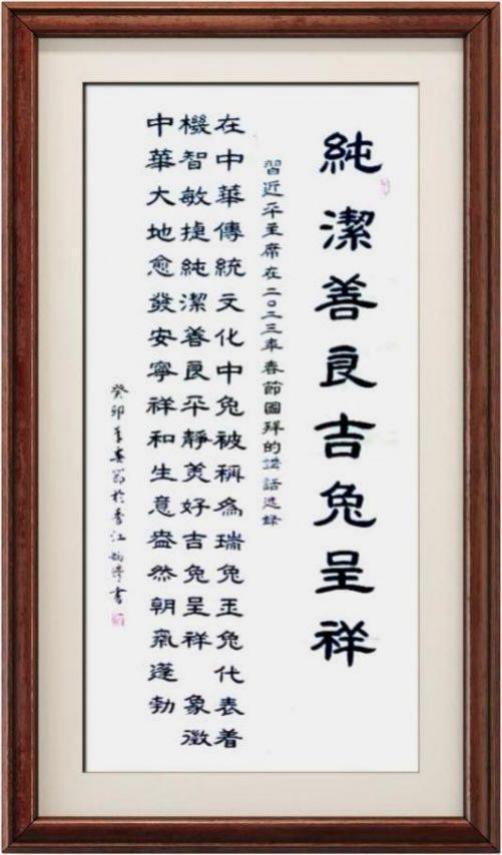 純潔善良吉兔呈祥
習近平主席在二○二三年春節團拜的講話選錄
在中華傳統文化中兔被稱為瑞兔玉兔代表着
機智敏捷純潔善良平靜美好吉兔呈祥 象徵
中華大地愈發安寧祥和生意盎然朝氣蓬勃
癸卯年春節於香江 書